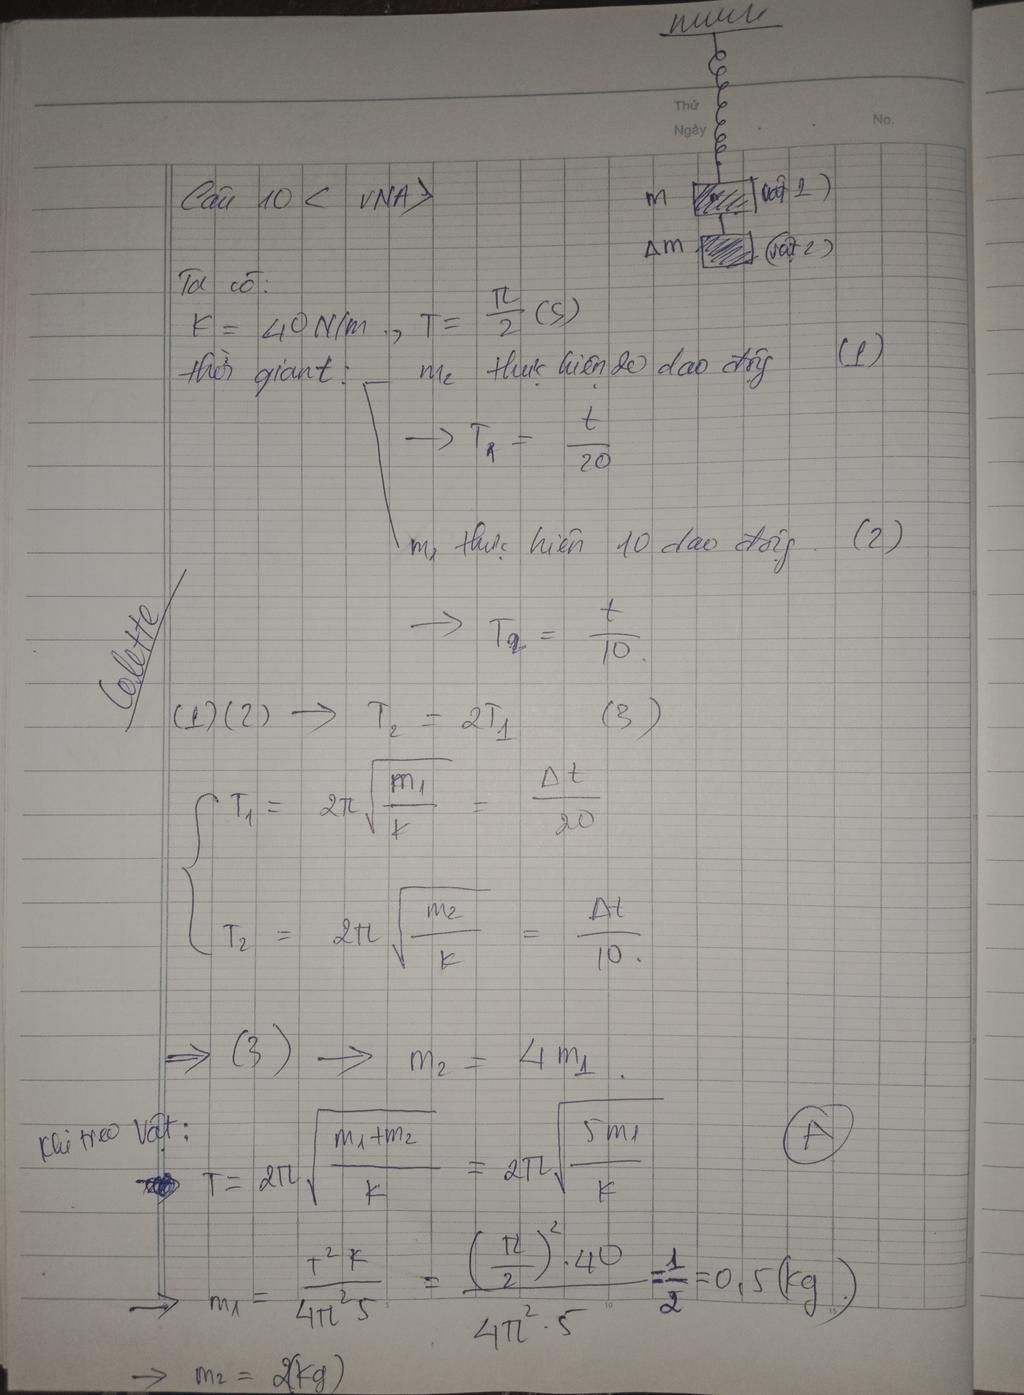 Thứ
Ngày
No.
Câu 10 < VNA>
m (vật 1)
Δm (vật 2)
Ta có:
K = 40 N/m , T = π/2 (s)
thời gian t: m₂ thực hiện 20 dao động (1)
→ T₁ = t/20
m₁ thực hiện 10 dao động. (2)
→ T₂ = t/10.
Colette
(1)(2) → T₂ = 2T₁ (3)
T₁ = 2π√(m₁/K) = Δt/20
T₂ = 2π√(m₂/K) = Δt/10.
⇒ (3) → m₂ = 4m₁.
Khi treo vật:
T = 2π√((m₁+m₂)/K) = 2π√(5m₁/K)
A
→ m₁ = T²K/(4π²5) = ((π/2)².40)/(4π².5) = 1/2 = 0,5 (kg)
→ m₂ = 2(kg)